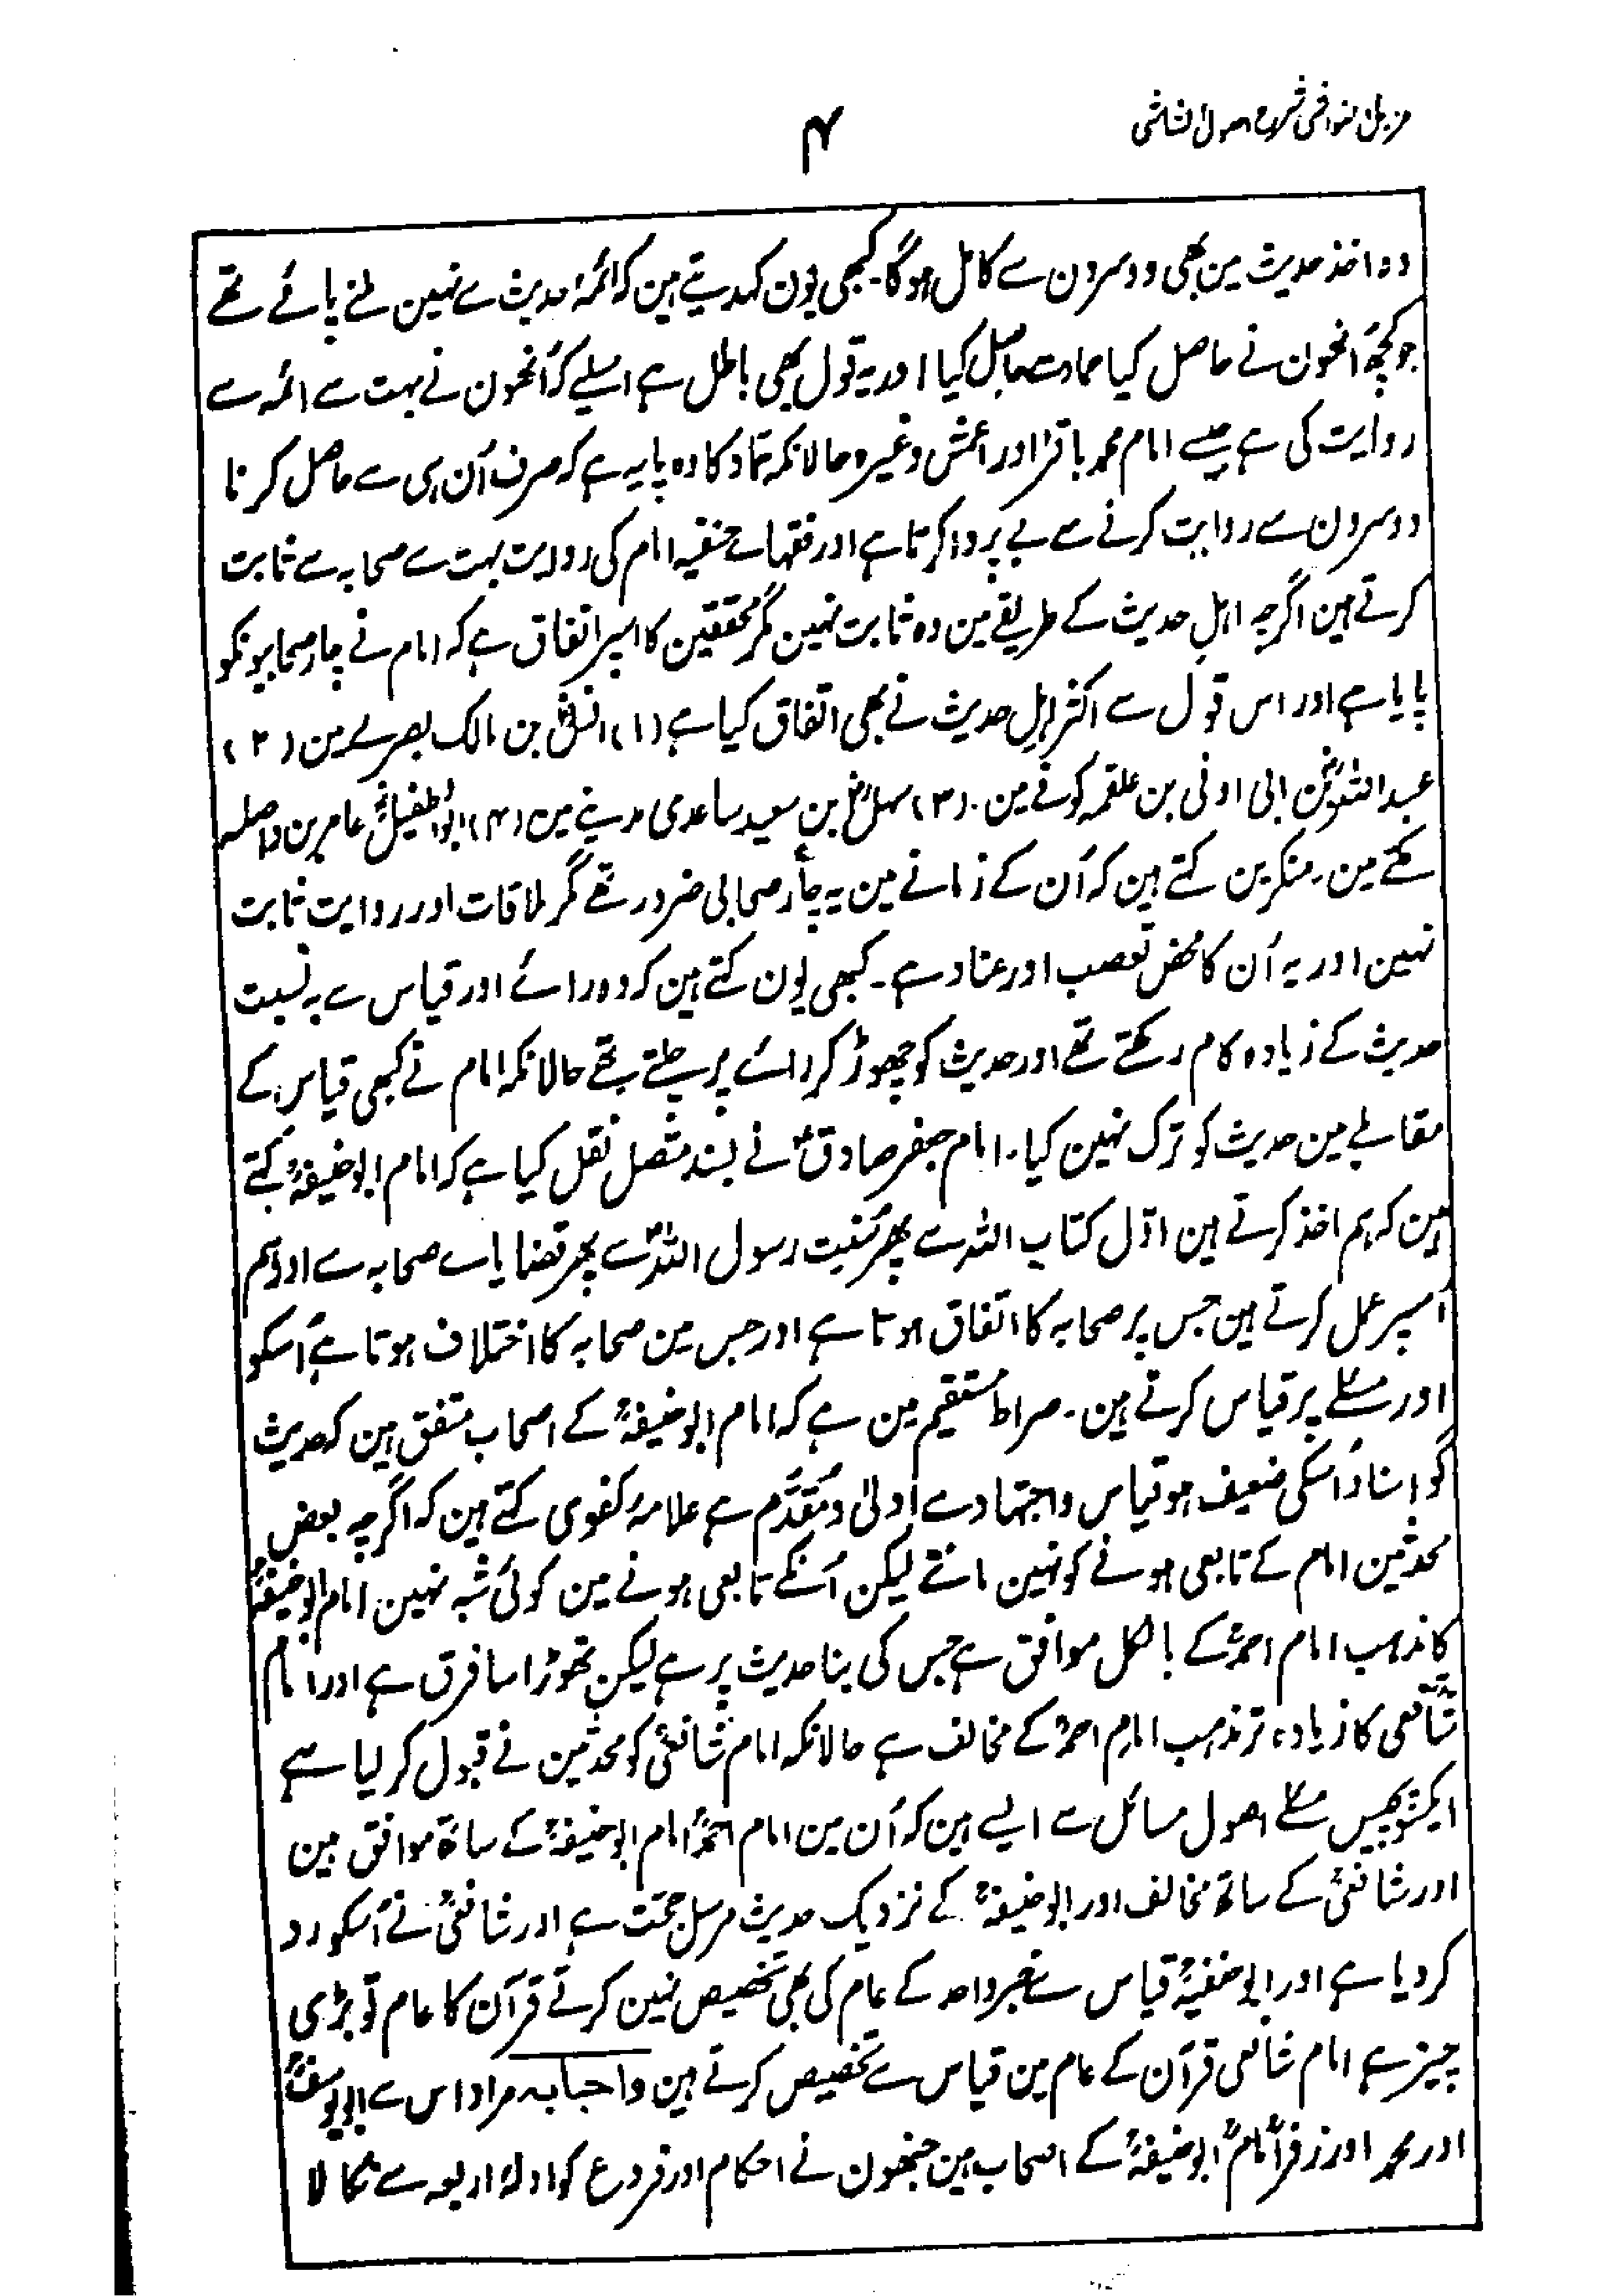 مزیل الغواشی شرح اصول الشاشی
۴
وہ اخذ حدیث مین بھی دوسرون سے کامل ہوگا۔ کبھی یون کہدیتے ہین کہ ائمۂ حدیث سے نہین ملنے پائے تھے
جو کچھ اُنھون نے حاصل کیا حماد سے حاصل کیا اور یہ قول بھی باطل ہے اسلیے کہ اُنھون نے بہت سے ائمہ سے
روایت کی ہے جیسے امام محمد باقرؑ اور اعمش وغیرہ حالانکہ حماد کا وہ پایہ ہے کہ صرف اُن ہی سے حاصل کرنا
دوسرون سے روایت کرنے سے بے پروا کرتا ہے اور فقہاے حنفیہ امام کی روایت بہت سے صحابہ سے ثابت
کرتے ہین اگرچہ اہلِ حدیث کے طریقے مین وہ ثابت نہین مگر محققین کا اسپر اتفاق ہے کہ امام نے چار صحابیونکو
پایا ہے اور اس قول سے اکثر اہلِ حدیث نے بھی اتفاق کیا ہے (۱) انسؓ بن مالک بصرے مین (۲)
عبد اللہؓ بن ابی اوفی بن علقمہ کوفے مین۔ (۳) سہلؓ بن سعید ساعدی مدینے مین (۴) ابو الطفیلؓ عامر بن واصلہ
مکے مین۔ منکرین کہتے ہین کہ اُن کے زمانے مین یہ چار صحابی ضرور تھے مگر ملاقات اور روایت ثابت
نہین اور یہ اُن کا محض تعصب اور عناد ہے۔ کبھی یون کہتے ہین کہ وہ رائے اور قیاس سے بہ نسبت
حدیث کے زیادہ کام رکھتے تھے اور حدیث کو چھوڑ کر رائے پر چلتے تھے حالانکہ امام نے کبھی قیاس کے
مقابلے مین حدیث کو ترک نہین کیا۔ امام جعفر صادقؑ نے بسند متصل نقل کیا ہے کہ امام ابو حنیفہؒ کہتے
ہین کہ ہم اخذ کرتے ہین اوّل کتاب اللہ سے پھر سُنّتِ رسول اللہؐ سے پھر قضایاے صحابہ سے اور ہم
اُسپر عمل کرتے ہین جس پر صحابہ کا اتفاق ہوتا ہے اور جس مین صحابہ کا اختلاف ہوتا ہے اُسکو
اور مسئلے پر قیاس کرتے ہین۔ صراط مستقیم مین ہے کہ امام ابو حنیفہؒ کے اصحاب متفق ہین کہ حدیث
گو اسناد اُسکی ضعیف ہو قیاس و اجتہاد سے اَولیٰ و مُقدَّم ہے علامۂ کفوی کہتے ہین کہ اگرچہ بعض
محدثین امام کے تابعی ہونے کو نہین مانتے لیکن اُنکے تابعی ہونے مین کوئی شبہ نہین۔ امام ابو حنیفہؒ
کا مذہب امام احمدؒ کے بالکل موافق ہے جس کی بنا حدیث پر ہے لیکن تھوڑا سا فرق ہے اور امام
شافعی کا زیادہ تر مذہب امام احمدؒ کے مخالف ہے حالانکہ امام شافعیؒ کو محدثین نے قبول کر لیا ہے
ایکسو پچیس مسئلے اصول مسائل سے ایسے ہین کہ اُن مین امام احمدؒ امام ابو حنیفہؒ کے ساتھ موافق ہین
اور شافعیؒ کے ساتھ مخالف اور ابو حنیفہؒ کے نزدیک حدیث مرسل حجّت ہے اور شافعیؒ نے اُسکو رد
کر دیا ہے اور ابو حنیفہؒ قیاس سے خبر واحد کے عام کی بھی تخصیص نہین کرتے قرآن کا عام تو بڑی
چیز ہے امام شافعی قرآن کے عام مین قیاس سے تخصیص کرتے ہین واحبابہ مراد اس سے ابو یوسفؒ
اور محمدؒ اور زفرؒ امام ابو حنیفہؒ کے اصحاب ہین جنھون نے احکام اور فروع کو ادلۂ اربعہ سے نکالا